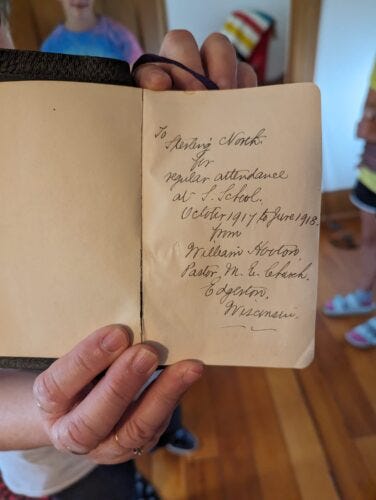 To
Sterling North.
for
regular attendance
at S. School.
October 1917 to June 1918.
from
William Hooton,
Pastor, M. E. Church,
Edgerton,
Wisconsin.